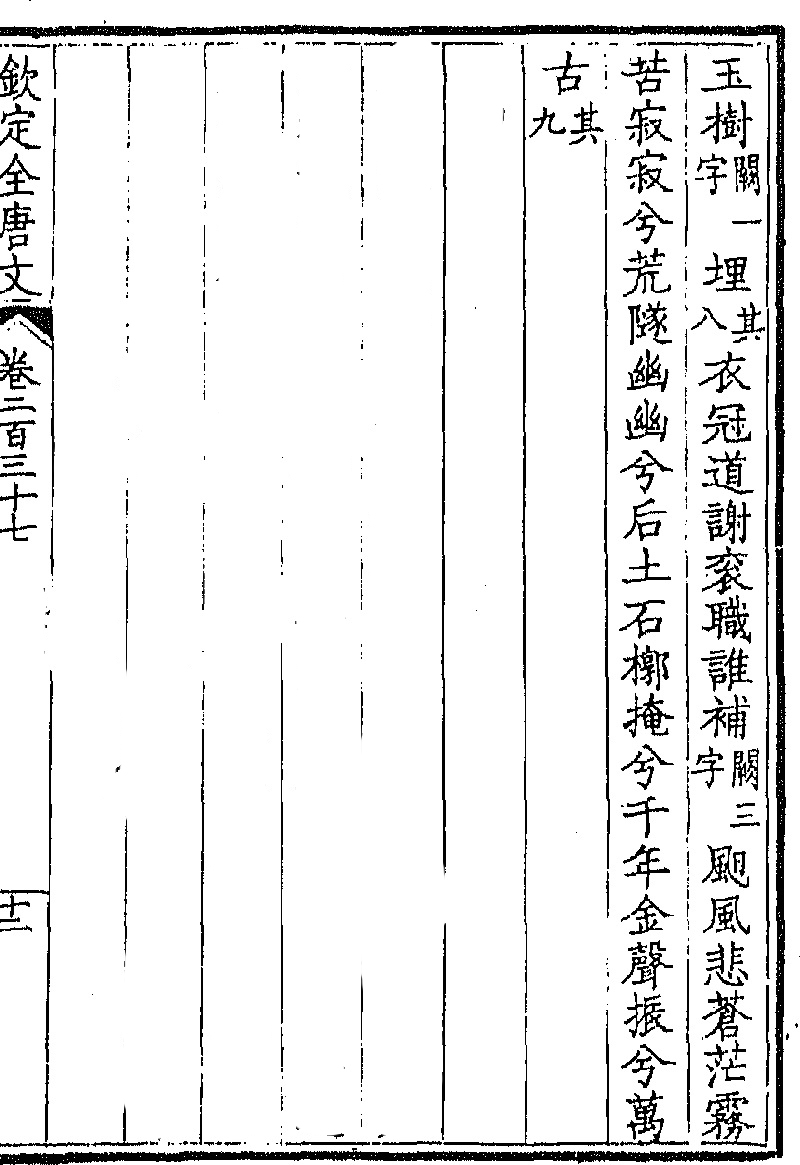 玉樹闕一字埋其八衣冠道謝衮職誰補闕三字颲風悲蒼茫霧
苦寂寂兮荒隧幽幽兮后土石槨掩兮千年金聲振兮萬
古其九
欽定全唐文 卷二百三十七 十二